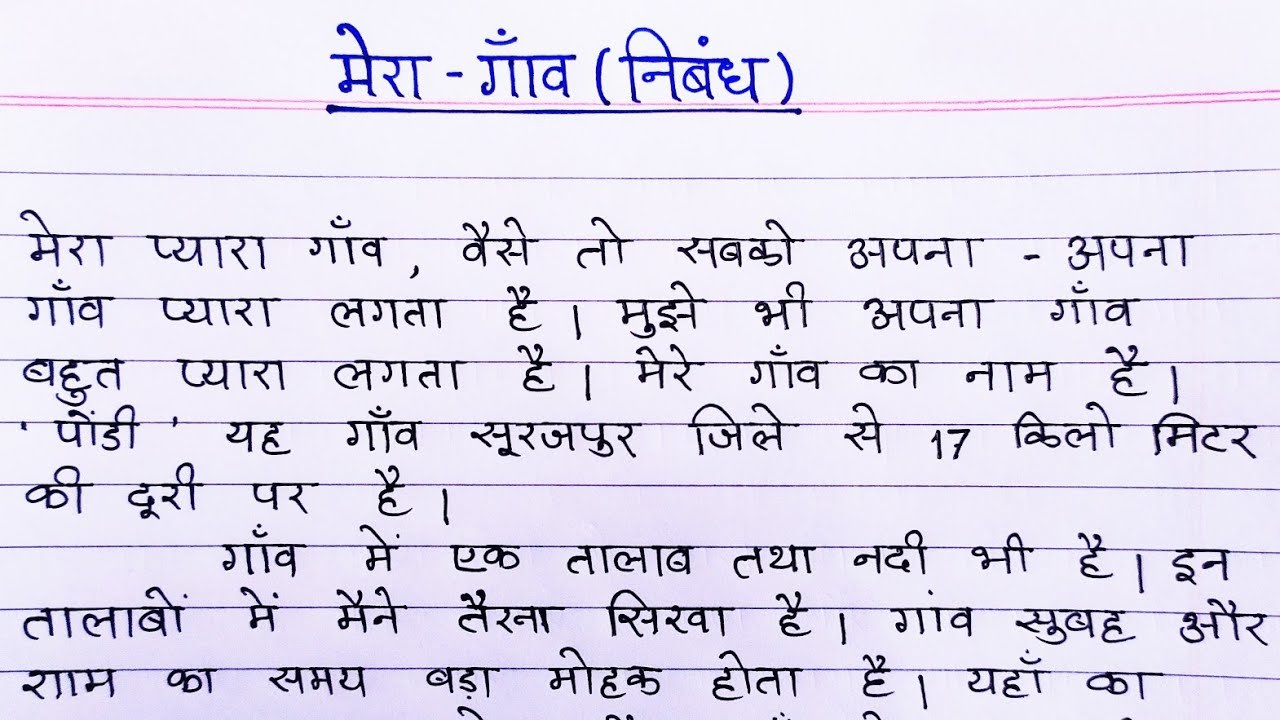 मेरा - गाँव ( निबंध )
मेरा प्यारा गाँव , वैसे तो सबको अपना - अपना
गाँव प्यारा लगता है । मुझे भी अपना गाँव
बहुत प्यारा लगता है । मेरे गाँव का नाम है ।
' पोंडी ' यह गाँव सूरजपुर जिले से 17 किलो मिटर
की दूरी पर है ।
गाँव में एक तालाब तथा नदी भी है । इन
तालाबों में मैने तैरना सिखा है । गांव सुबह और
शाम का समय बड़ा मोहक होता है । यहाँ का